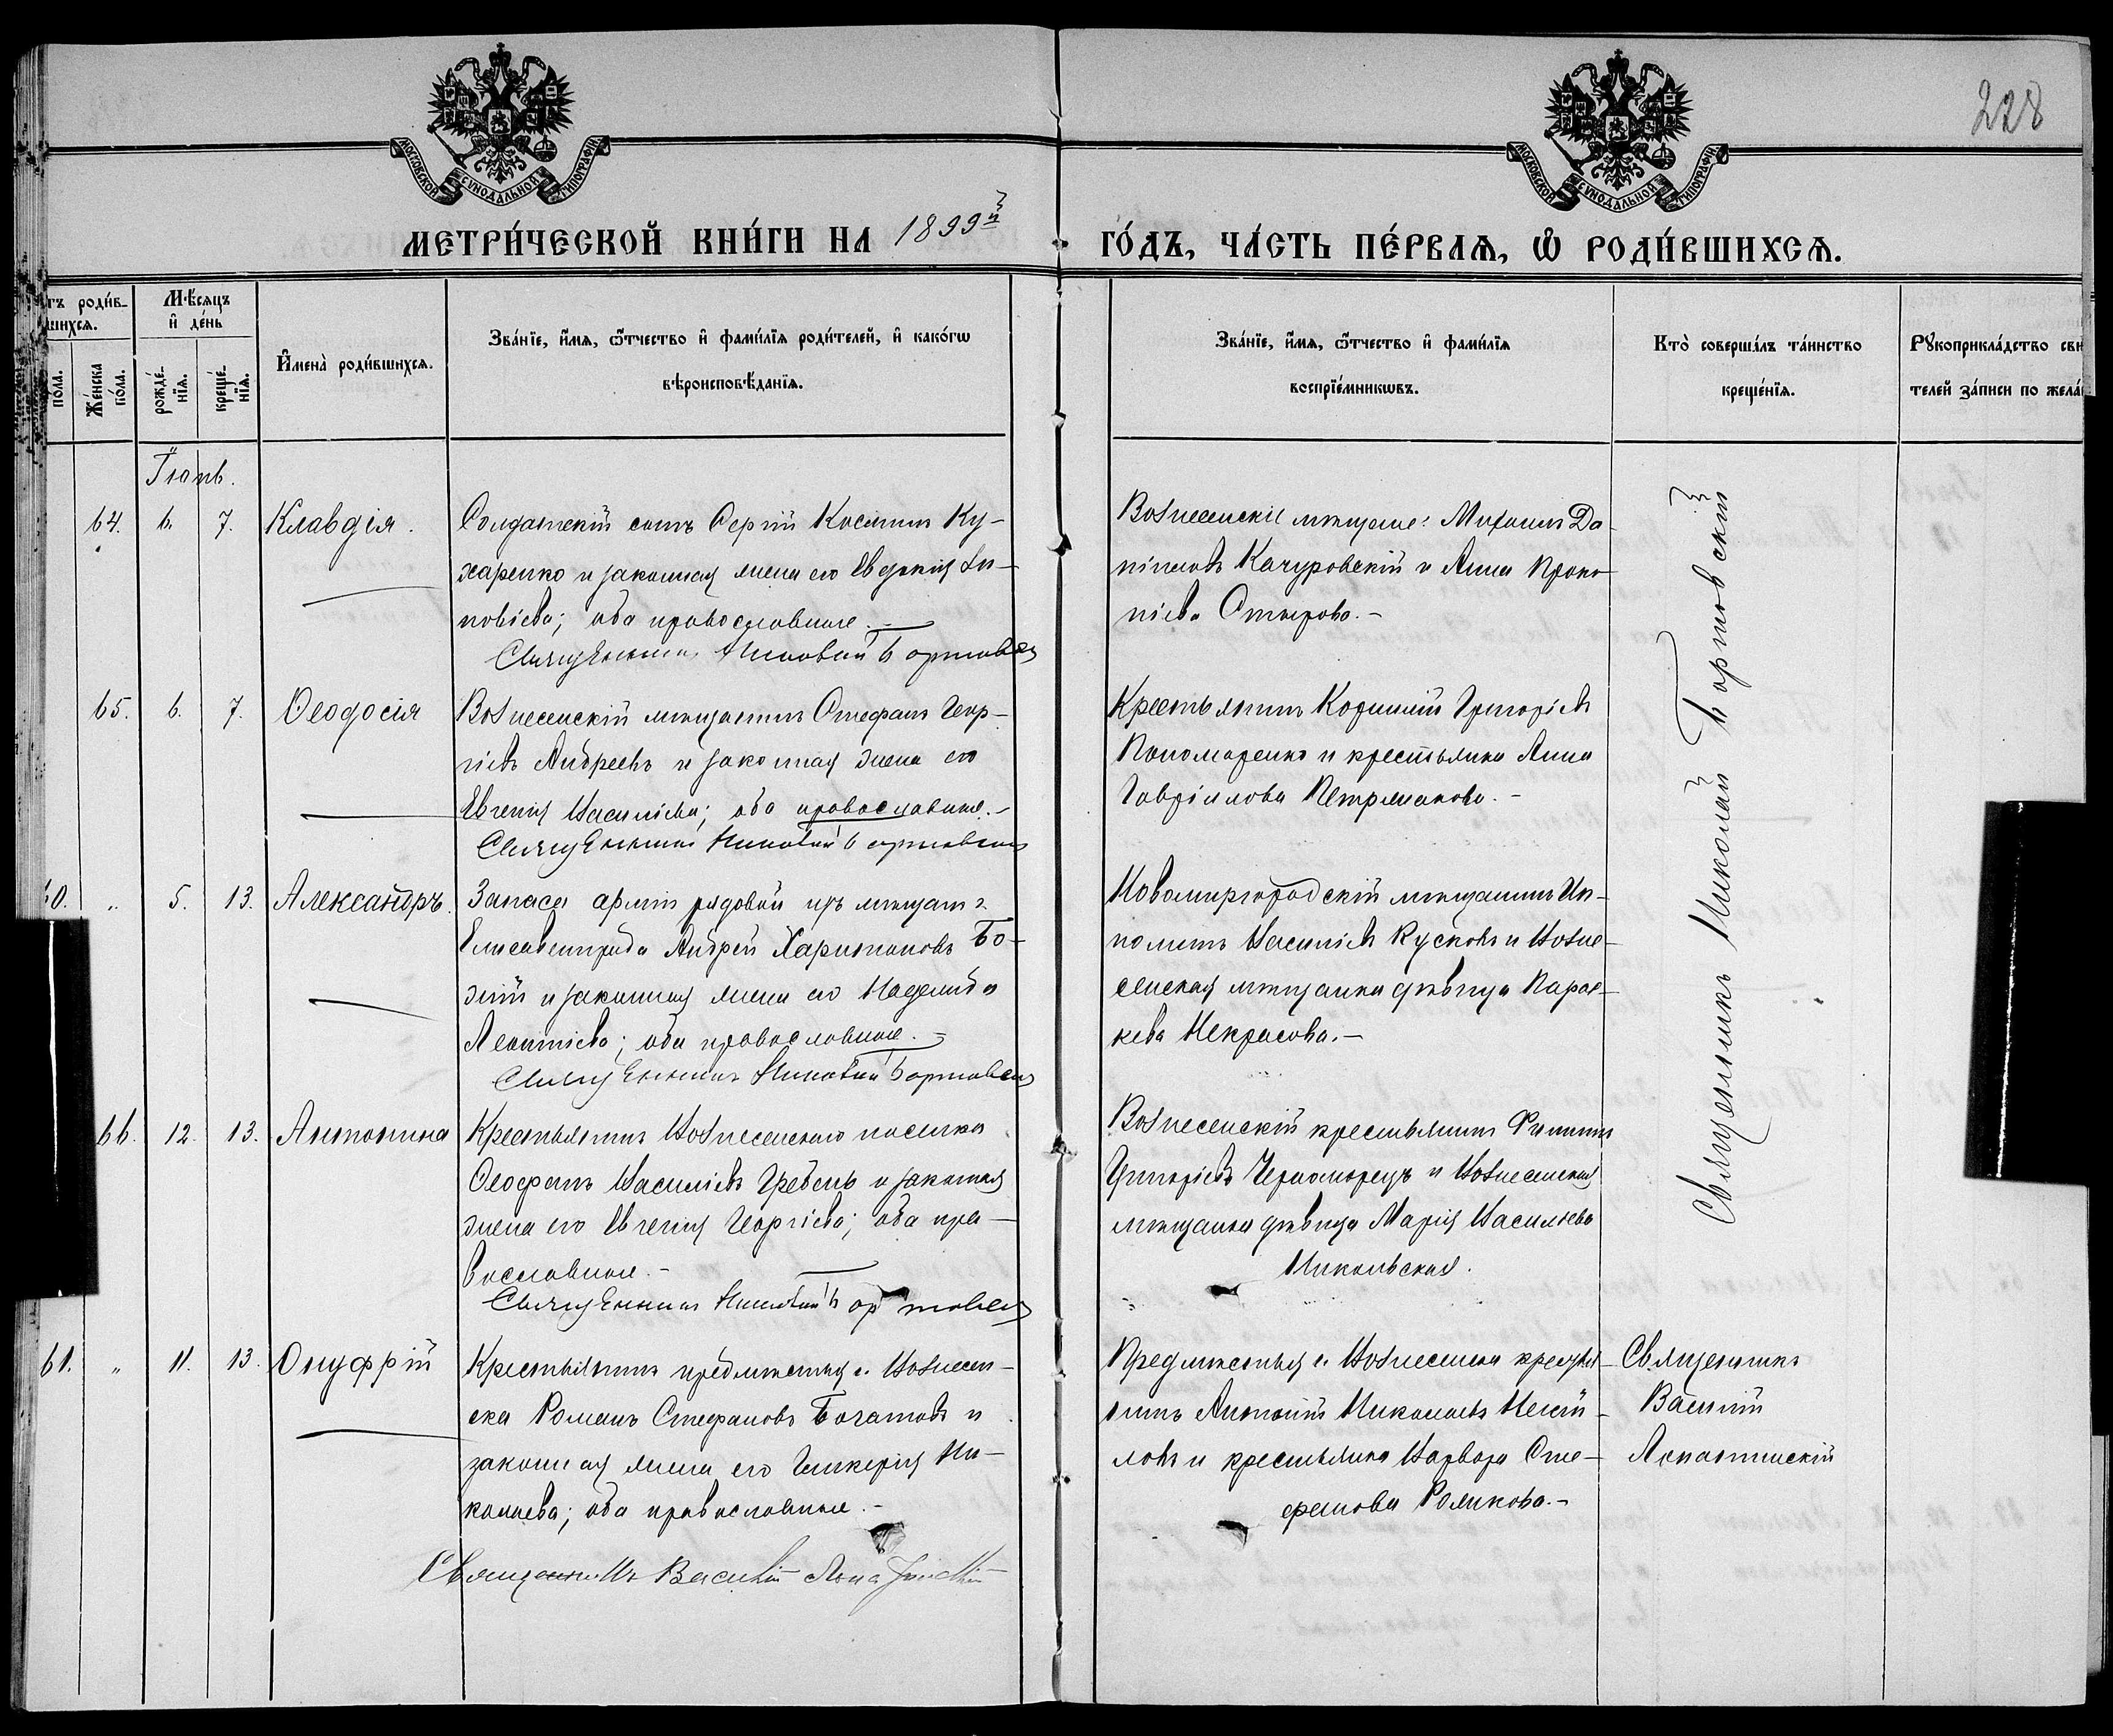 228
МОСКОВСКОЙ СѴНОДАЛЬНОЙ ТИПОГРАФІИ
МОСКОВСКОЙ СѴНОДАЛЬНОЙ ТИПОГРАФІИ
МЕТРИ́ЧЕСКОЙ КНИ́ГИ НА 1899й ГО́ДЪ, ЧА́СТЬ ПЕ́РВАѦ, Ѡ҆ РОДИ́ВШИХСѦ.
тъ роди́в-
шихсѧ.
пола.
Же́нска по́ла.
Мѣ́сѧцъ и҆ де́нь
рожде́-нїѧ.
креще́-нїѧ.
И҆мена̀ роди́вшихсѧ.
Зва́нїе, и҆́мѧ, ѻ҆́тчество и҆ фами́лїѧ роди́телей, и҆ како́гѡ
вѣроисповѣ́данїѧ.
Зва́нїе, и҆́мѧ, ѻ҆́тчество и҆ фами́лїѧ
воспрїе́мникѡвъ.
Кто̀ соверша́лъ та́инство
креще́нїѧ.
Рꙋкоприкла́дство сви
телей за́писи по жела
Іюнь.
64. 6. 7. Клавдія.
Солдатскій сынъ Сергій Косминъ Ку-
харенко и законная жена его Евдокія
повіева; оба православные.-
Священникъ Николай Бортовск
Вознесенскіе мѣщане: Михаилъ Да-
ніиловъ Качуровскій и Анна Проко-
піева Отырова.-
Священникъ Николай Бортовскій
65. 6. 7. Ѳеодосія
Вознесенскій мѣщанинъ Стефанъ Геор-
гіевъ Андреевъ и законная жена его
Евгенія Василіева; оба православные.-
Священникъ Николай Бортовскій
Крестьянинъ Корнилій Григоріевъ
Пономаренко и крестьянка Анна
Гавріилова Петрлюкова.-
60. " 5. 13. Александръ.
Запаса арміи рядовой изъ мѣщанъ г.
Елисаветграда Андрей Харитоновъ Бо-
жій и законная жена его Надежда
Леонтіева; оба православные.-
Священникъ Николай Бортовск
Новомиргородскій мѣщанинъ Ип-
политъ Василіевъ Кусковъ и Возне-
сенская мѣщанка дѣвица Парас-
кева Некрасова.-
66. 12. 13. Антонина
Крестьянинъ Вознесенскаго поселка
Ѳеофанъ Василіевъ Гребень и законная
жена его Евгенія Георгіева; оба пра-
вославные.-
Священникъ Николай Бортовск
Вознесенскій крестьянинъ Филиппъ
Григоріевъ Черноморецъ и Вознесенская
мѣщанка дѣвица Марія Васильева
Никольская.
61. " 11. 13. Онуфрій
Крестьянинъ предмѣстья г. Вознесен-
ска Романъ Стефановъ Богатовъ и
законная жена его Гликерія Ни-
колаева; оба православные.-
Священникъ Василій Лопатинскій
Предмѣстья г. Вознесенска крестья-
нинъ Антоній Николаевъ
ловъ и крестьянка Варвара Сте-
фанова Полякова.-
Священникъ
Василій
Лопатинскій